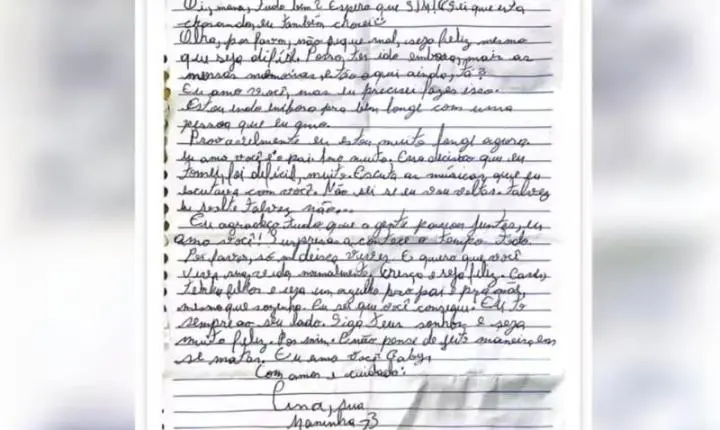 Oi, mana, tudo bem? Espero que SIM! Sei que está
chorando, eu também chorei
Olha, por favor, não fique mal, seja feliz mesmo
que seja difícil. Posso ter ido embora, mais as
nossas memórias, estão aqui ainda, tá?
Eu amo você, mas eu preciso fazer isso.
Estou indo embora pra bem longe com uma
pessoa que eu
Provavelmente eu estou muito longe agora
eu amo você e o pai muito. Essa decisão que eu
tomei, foi difícil, muito. Escuta as músicas que eu
escutava com você. Não sei se eu vou voltar. talvez
eu volte talvez não...
Eu agradeço tudo que a gente passou juntas, eu
amo você! Surpresas acontece o tempo todo.
Por favor, só me deixa viver. E quero que você
viva sua vida normalmente. Cresça e seja feliz. Case,
tenha filhos e seja um orgulho pro pai e pra mãe,
mesmo que sozinha. Eu sei que você consegue. Eu to
sempre ao seu lado. Siga teus sonhos e seja
muito feliz. Por mim. E não pense de jeito maneira em
se matar. Eu amo você Gaby,
Com amor e cuidado:
sua
Maninha <3